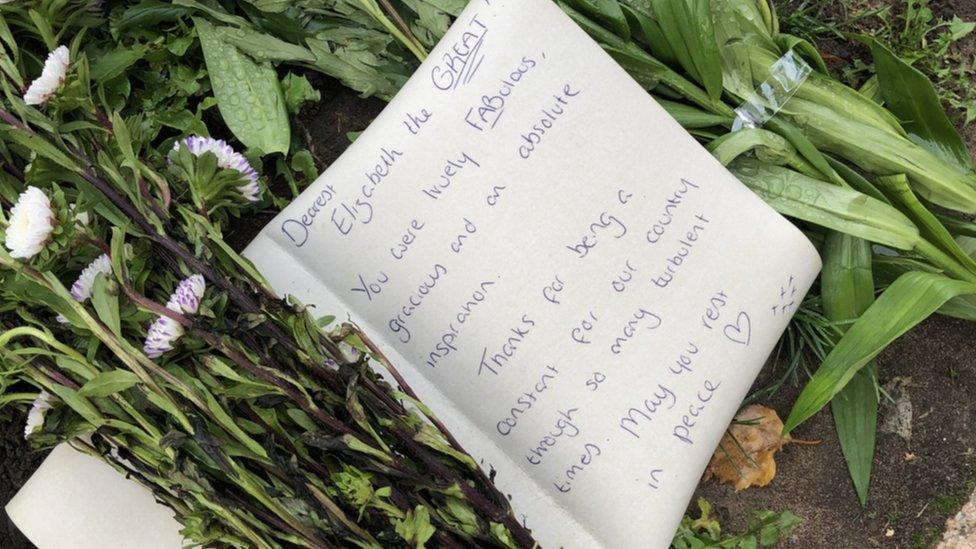 Dearest
Elizabeth the GREAT!
You were truely FABulous,
gracious and an absolute
inspiration
Thanks for being a
constant for our country
through so many turbulent
times. May you rest
in peace ♡